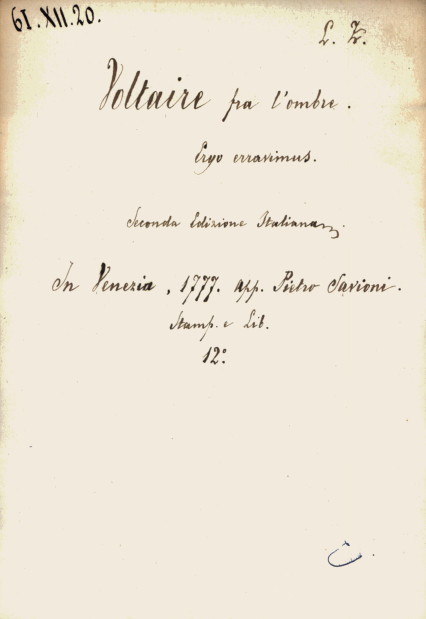 61.XII.20.
Voltaire fra l'ombre.
Ergo erravimus.
Seconda Edizione Italiana
In Venezia, 1777. app. Pietro Savioni.
Stamp. e Lib.
12°